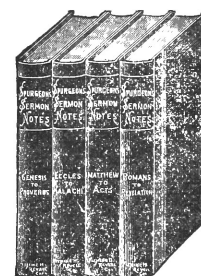 SPURGEON'S
SERMON
NOTES
GENESIS
TO
PROVERBS
SPURGEON'S
SERMON
NOTES
ECCLES
TO
MALACHI
SPURGEON'S
SERMON
NOTES
MATTHEW
TO
ACTS
SPURGEON'S
SERMON
NOTES
ROMANS
TO
REVELATION